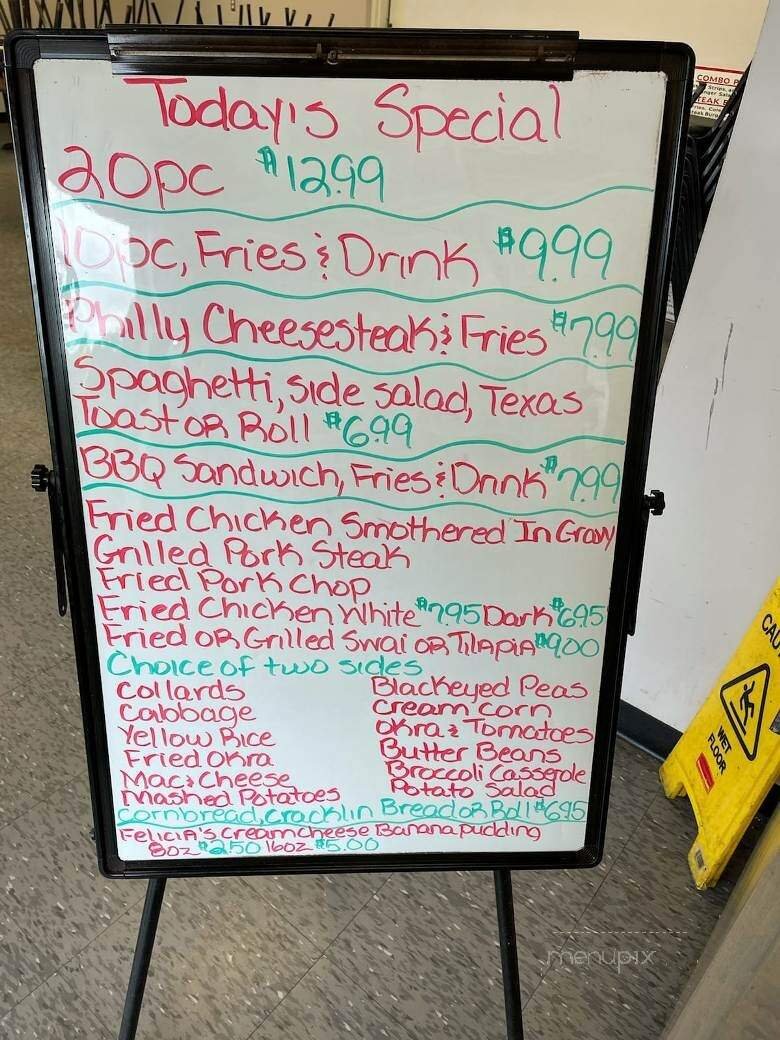 Today's Special
20pc $12.99
10pc, Fries & Drink $9.99
Philly Cheesesteak & Fries $7.99
Spaghetti, side salad, Texas
Toast OR Roll $6.99
BBQ Sandwich, Fries & Drink $7.99
Fried Chicken Smothered In Gravy
Grilled Pork Steak
Fried Pork Chop
Fried Chicken White $7.95 Dark $6.95
Fried OR Grilled Swai OR Tilapia $9.00
Choice of two sides
Collards
Cabbage
Yellow Rice
Fried Okra
Mac & Cheese
Mashed Potatoes
Blackeyed Peas
Cream Corn
Okra & Tomatoes
Butter Beans
Broccoli Casserole
Potato Salad
Cornbread, Cracklin Bread OR Roll $6.95
Felicia's Creamcheese Banana pudding
8oz $2.50 16oz $5.00
COMBO
WET
FLOOR
menupix